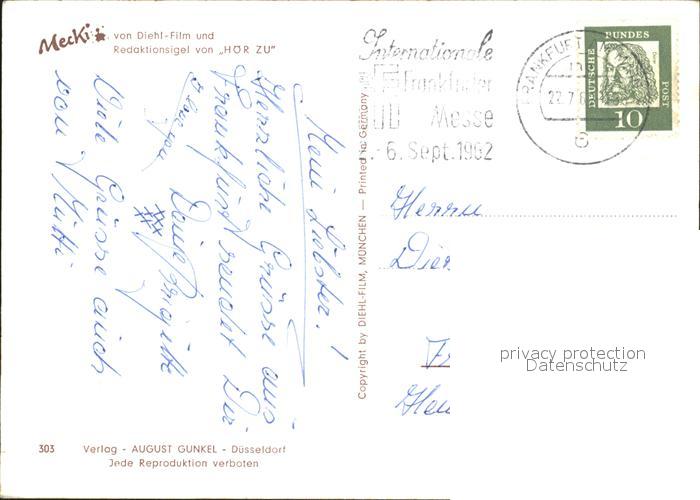 Mecki von Diehl-Film und
Redaktionsigel von „HÖR ZU"
Mein Liebster!
Herzliche Grüsse aus
Frankfurt sendet Dir
Deine Brigitte
xxx
Viele Grüsse auch
von Mutti
303 Verlag - AUGUST GUNKEL - Düsseldorf
Jede Reproduktion verboten
Copyright by DIEHL-FILM, MÜNCHEN — Printed in Germany
Internationale
Frankfurter
Messe
- 6. Sept. 1962
FRANKFURT
22.7.6
e
DEUTSCHE BUNDES POST
10
Herrn
privacy protection
Datenschutz